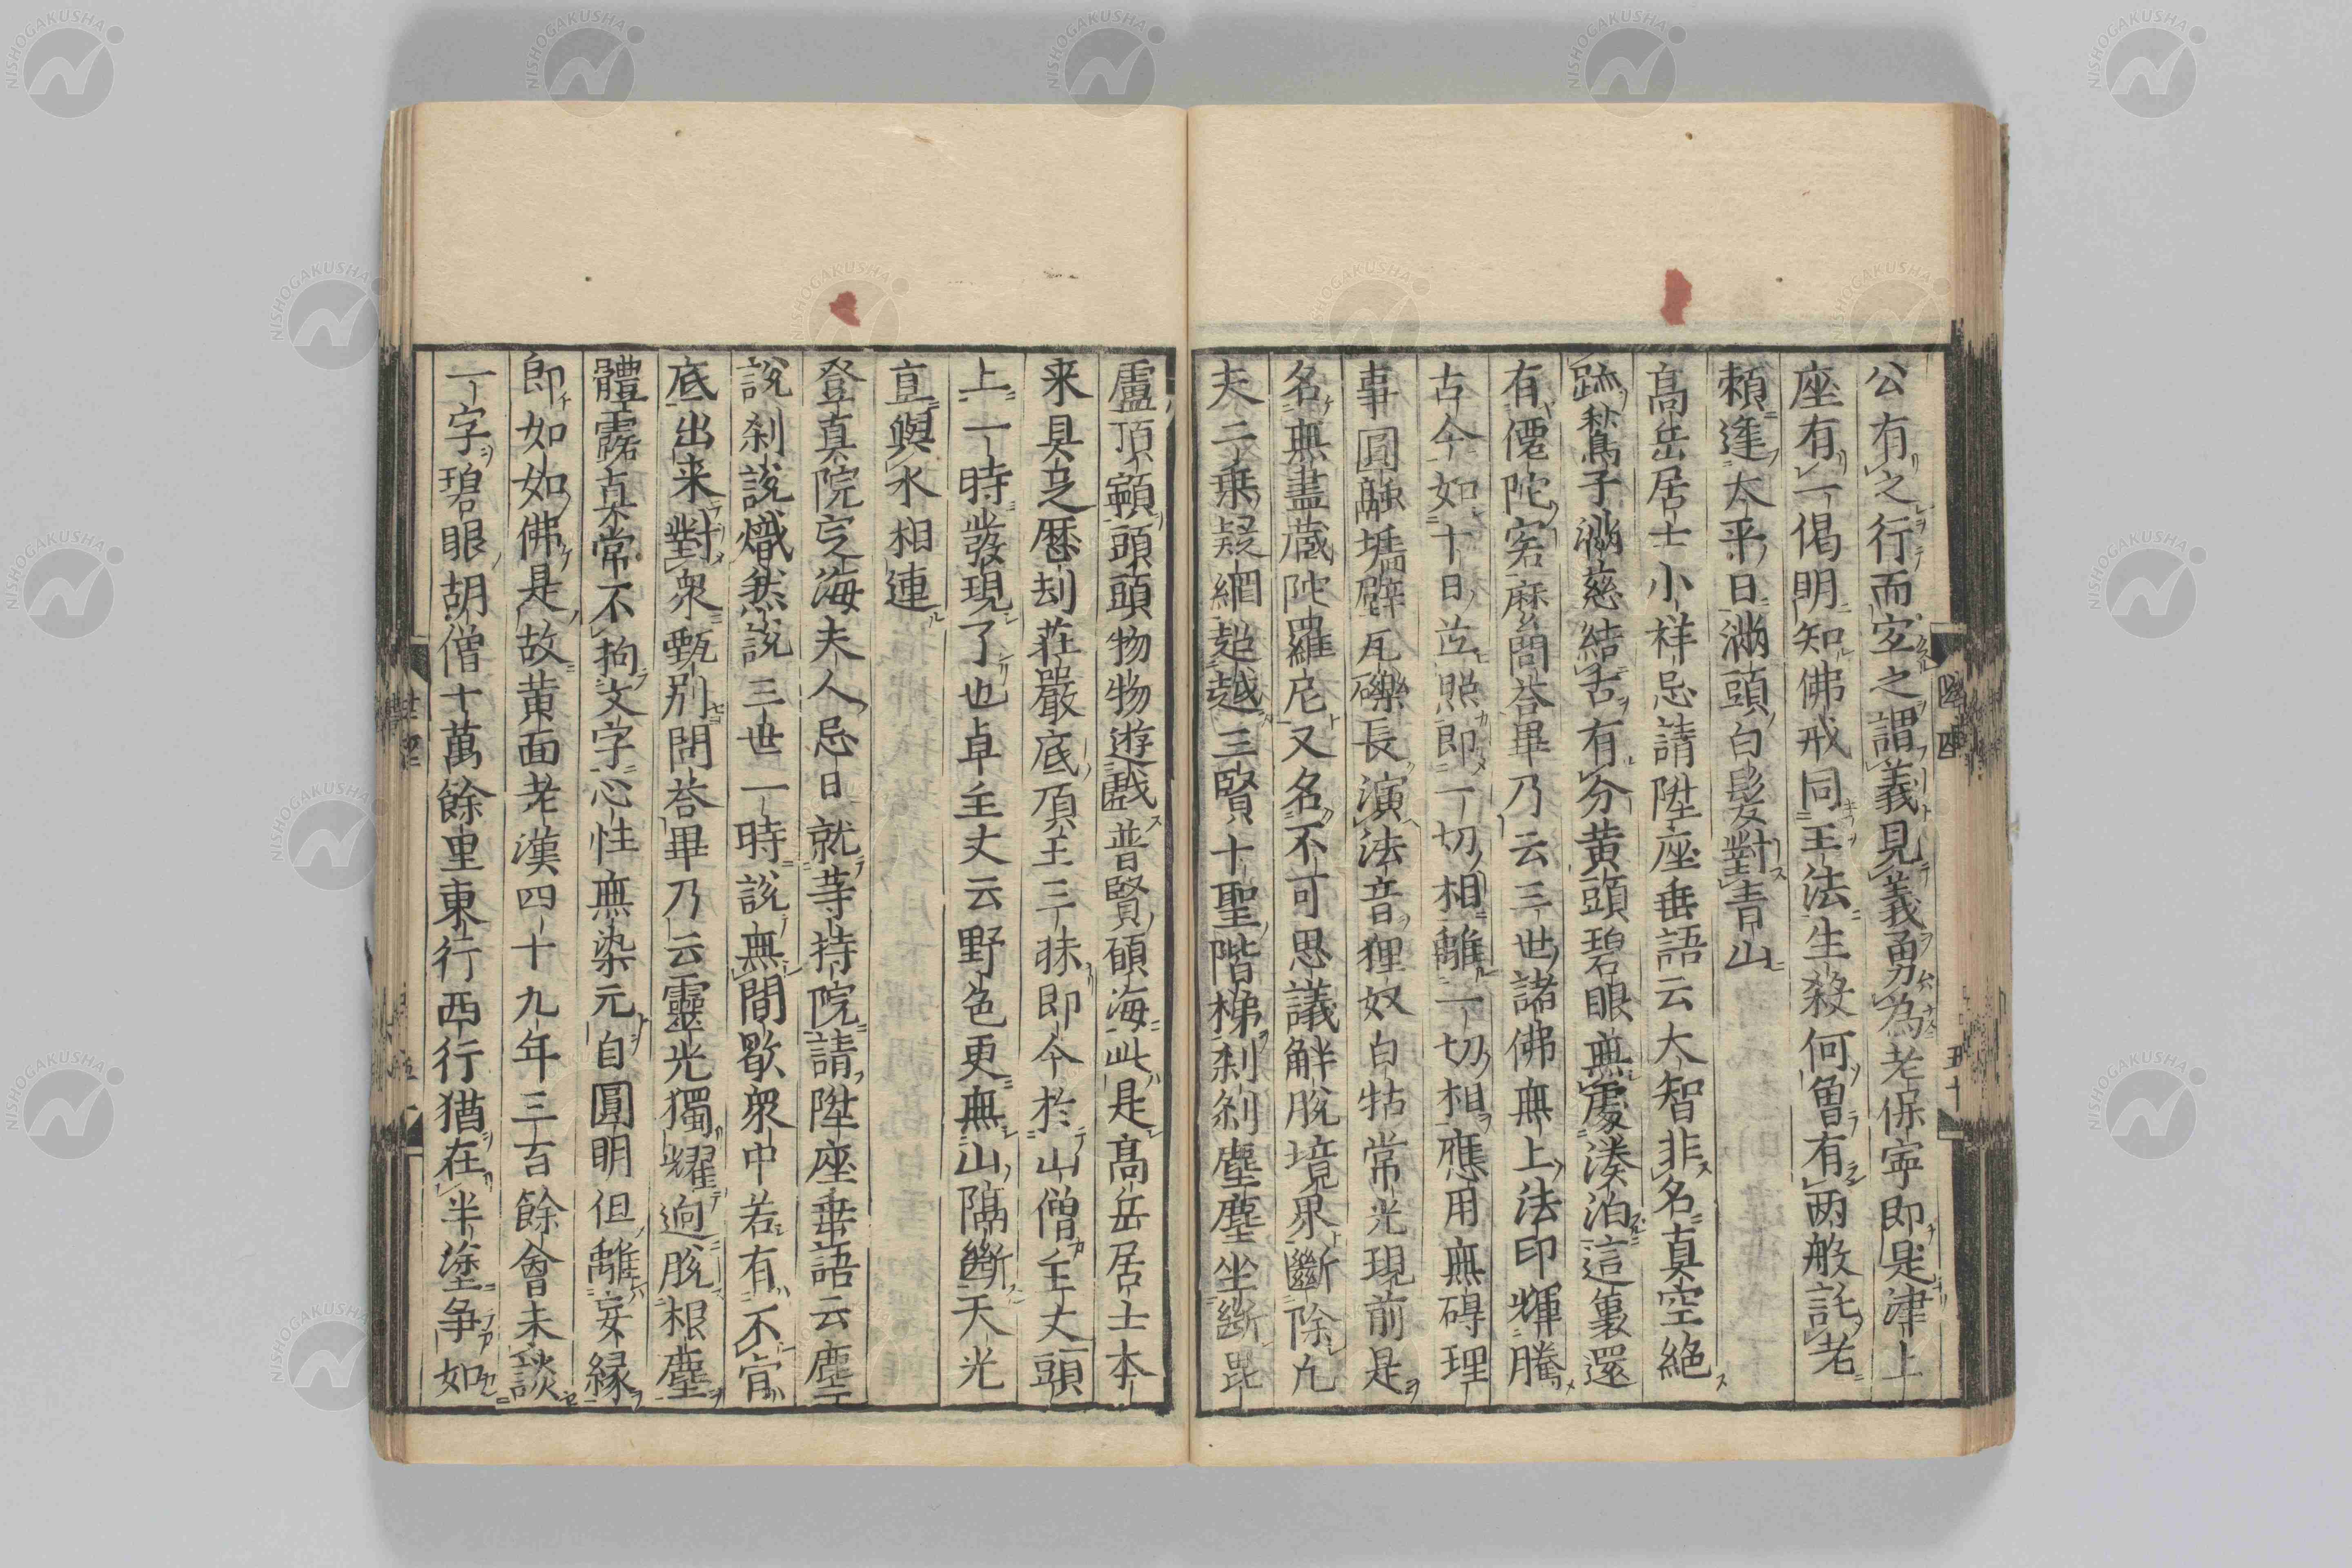 公有之行而空之謂義見義勇為老保寧即是津上
座有一偈明知佛戒同王法生殺何魯有两般託老
頼逢太平日滿頭白髮對青山
高岳居士小祥忌請陞座垂語云大智非名真空絶
跡鶖子滿慈結舌有分黄頭碧眼無處湊泊這裏還
有僊陀客麽問荅畢乃云三世諸佛無上法印輝騰
古今如十日並照即一切相離一切相應用無碍理
事圓融墻壁瓦礫長演法音狸奴白牯常光現前是
名無盡蔵陀羅尼又名不可思議解脫境界斷除九
夫二乗疑網超越三賢十聖階梯刹刹塵塵坐斷毘
盧頂𩕳頭頭物物遊戲普賢願海此是高岳居士本
来具足歴刼莊嚴底頂王三昧即今於山僧主丈頭
上一時發現了也卓主丈云野色更無山隔斷天光
直與水相連
登真院定海夫人忌日就等持院請陞座垂語云塵
說刹說熾然說三世一時說無間歇衆中若有不宵
底出来對衆甄別問荅畢乃云靈光獨耀逈脫根塵
體露真常不拘文字心性無染元自圓明但離妄縁
即如如佛是故黄面老漢四十九年三百餘會未談
一字碧眼胡僧十萬餘里東行西行猶在半塗争如
NISHOGAKUSHA